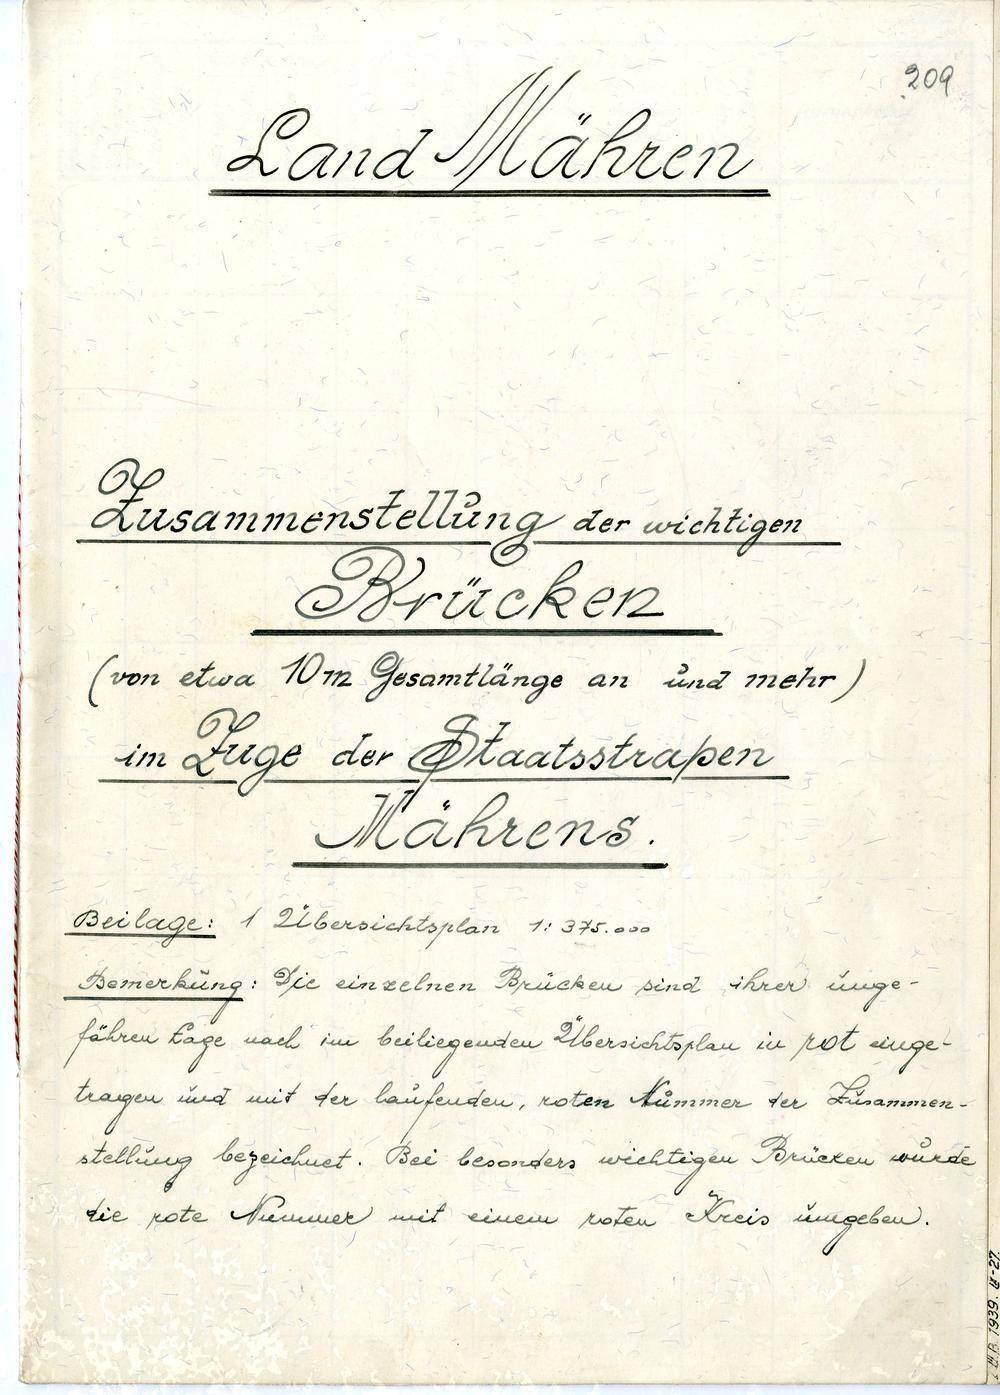 209
Land Mähren
Zusammenstellung der wichtigen
Brücken
(von etwa 10 m Gesamtlänge an und mehr)
im Zuge der Staatsstraßen
Mährens.
Beilage: 1 Übersichtsplan 1:375.000
Bemerkung: Die einzelnen Brücken sind ihrer unge-
fähren Lage nach im beiliegenden Übersichtsplan in rot einge-
tragen und mit der laufenden, roten Nummer der Zusammen-
stellung bezeichnet. Bei besonders wichtigen Brücken wurde
die rote Nummer mit einem roten Kreis umgeben.
1939.